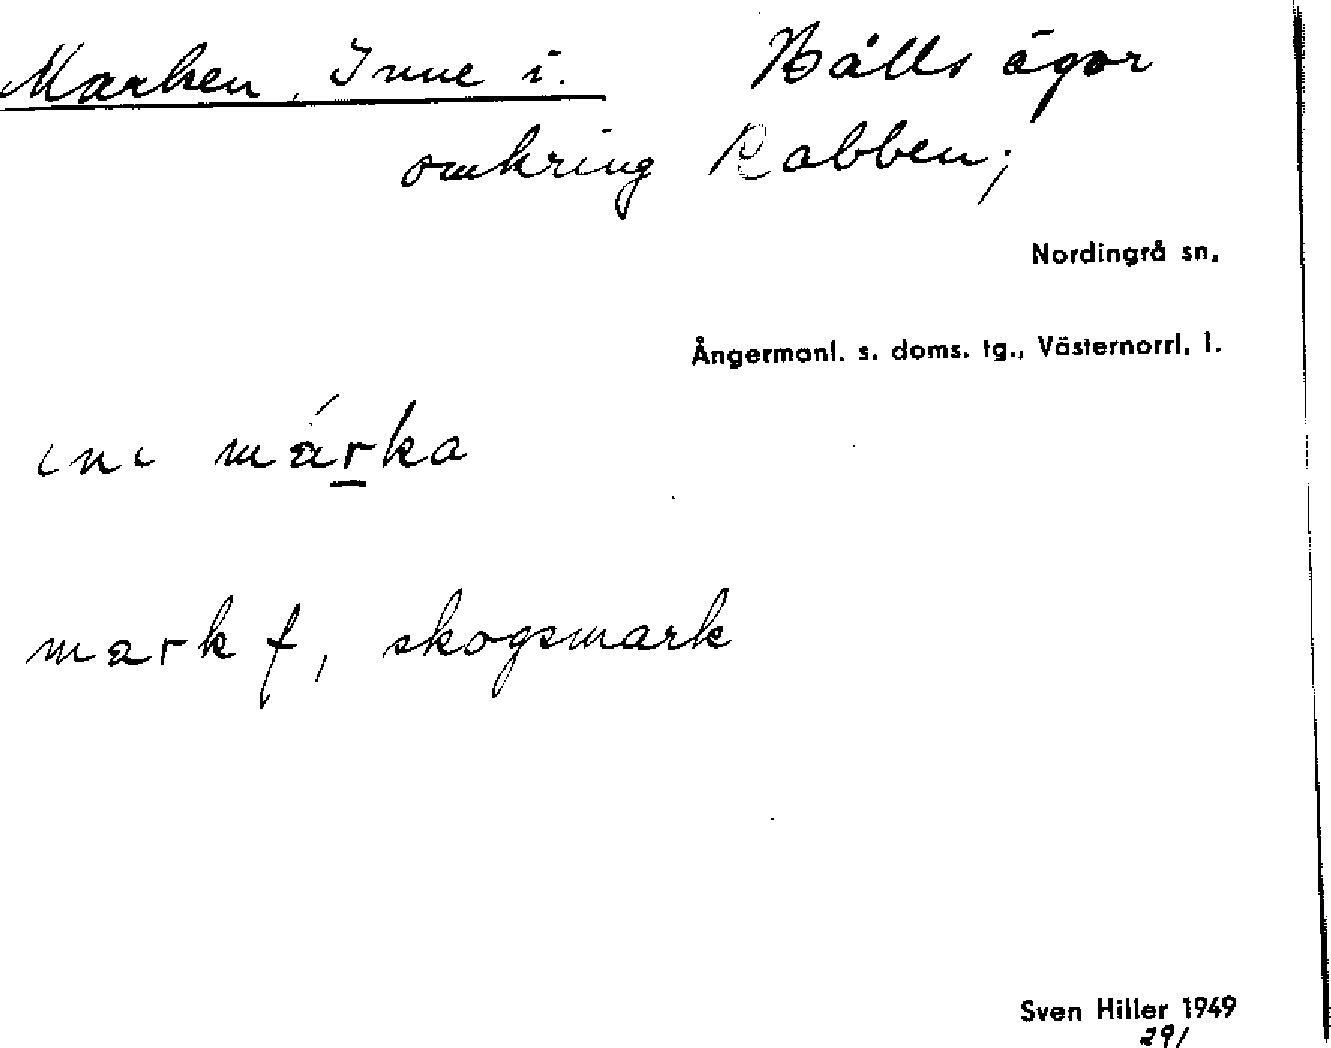 Marken, Inne i. Hälls ägor
omkring Rabben;
Nordingrå sn.
Ångermanl. s. doms. tg., Västernorrl. l.
ini márka
mark f, skogsmark
Sven Hiller 1949
291